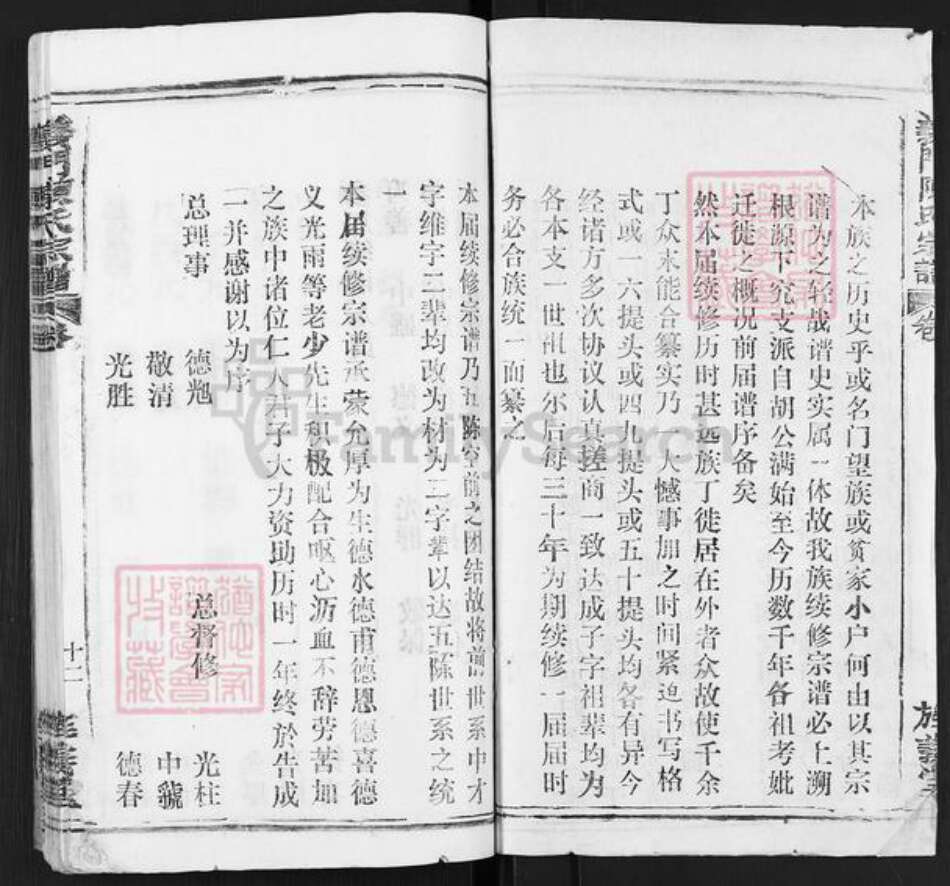 本族之历史乎或名门望族或贫家小户何由以其宗
谱为之轻哉谱史实属一体故我族续修宗谱必上溯
根源下究支派自胡公满始至今历数千年各祖考妣
迁徙之概况前届谱序备矣
然本届续修历时甚远族丁徙居在外者众故使千余
丁众未能合纂实乃一大憾事加之时间紧迫书写格
式或一六提头或四九提头或五十提头均各有异今
经诸方多次协议认真搓商一致达成子字祖辈均为
各本支一世祖也尔后每三十年为期续修一届届时
务必合族统一而纂之
本届续修宗谱乃五陈空前之团结故将前世系中才
字维字三辈均改为材为二字辈以达五陈世系之统
一
本届续修宗谱承蒙允厚为生德水德甫德恩德喜德
义光雨等老少先生积极配合呕心沥血不辞劳苦加
之族中诸位仁人君子大力资助历时一年终於告成
一并感谢以为序
总理事
德灺
敬清
光胜
总督修
光柱
中虢
德春
義門陳氏宗譜
卷
十二
旌義堂
義門陳氏宗譜
卷
旌義堂
FamilySearch